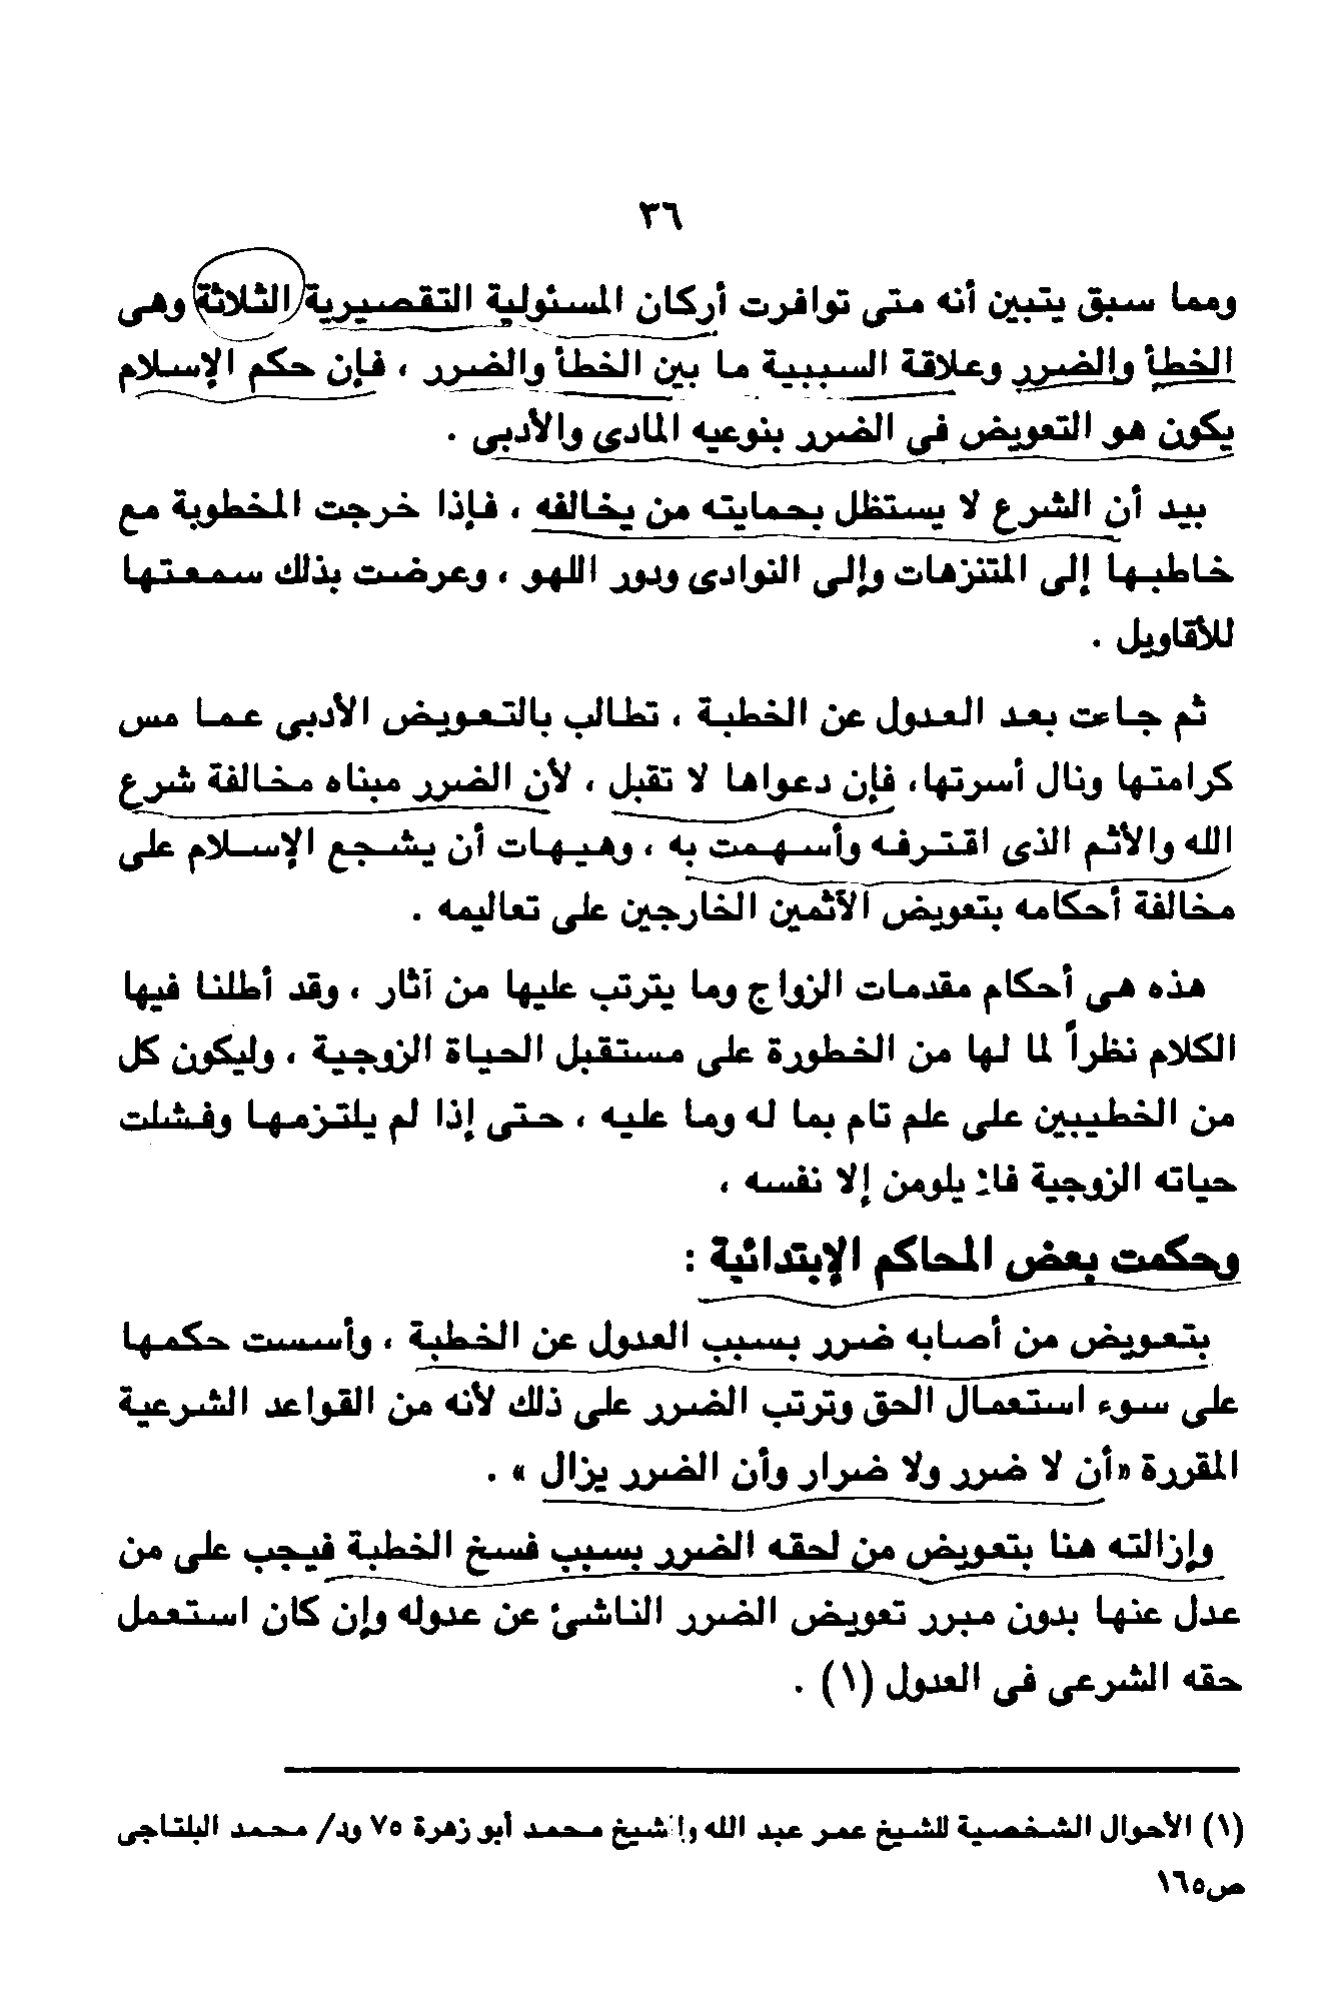 ٣٦
ومما سبق يتبين أنه متى توافرت أركان المسئولية التقصيرية الثلاثة وهى
الخطأ والضرر وعلاقة السببية ما بين الخطأ والضرر ، فإن حكم الإسلام
يكون هو التعويض فى الضرر بنوعيه المادى والأدبى .
بيد أن الشرع لا يستظل بحمايته من يخالفه ، فإذا خرجت المخطوبة مع
خاطبها إلى المتنزهات وإلى النوادى ودور اللهو ، وعرضت بذلك سمعتها
للأقاويل .
ثم جاءت بعد العدول عن الخطبة ، تطالب بالتعويض الأدبى عما مس
كرامتها ونال أسرتها، فإن دعواها لا تقبل ، لأن الضرر مبناه مخالفة شرع
الله والأثم الذى اقترفه وأسهمت به ، وهيهات أن يشجع الإسلام على
مخالفة أحكامه بتعويض الآثمين الخارجين على تعاليمه .
هذه هى أحكام مقدمات الزواج وما يترتب عليها من آثار ، وقد أطلنا فيها
الكلام نظراً لما لها من الخطورة على مستقبل الحياة الزوجية ، وليكون كل
من الخطيبين على علم تام بما له وما عليه ، حتى إذا لم يلتزمها وفشلت
حياته الزوجية فلا يلومن إلا نفسه ،
وحكمت بعض المحاكم الإبتدائية :
بتعويض من أصابه ضرر بسبب العدول عن الخطبة ، وأسست حكمها
على سوء استعمال الحق وترتب الضرر على ذلك لأنه من القواعد الشرعية
المقررة «أن لا ضرر ولا ضرار وأن الضرر يزال » .
وإزالته هنا بتعويض من لحقه الضرر بسبب فسخ الخطبة فيجب على من
عدل عنها بدون مبرر تعويض الضرر الناشئ عن عدوله وإن كان استعمل
حقه الشرعى فى العدول (١) .
(١) الأحوال الشخصية للشيخ عمر عبد الله والشيخ محمد أبو زهرة ٧٥ ود/ محمد البلتاجى
ص١٦٥